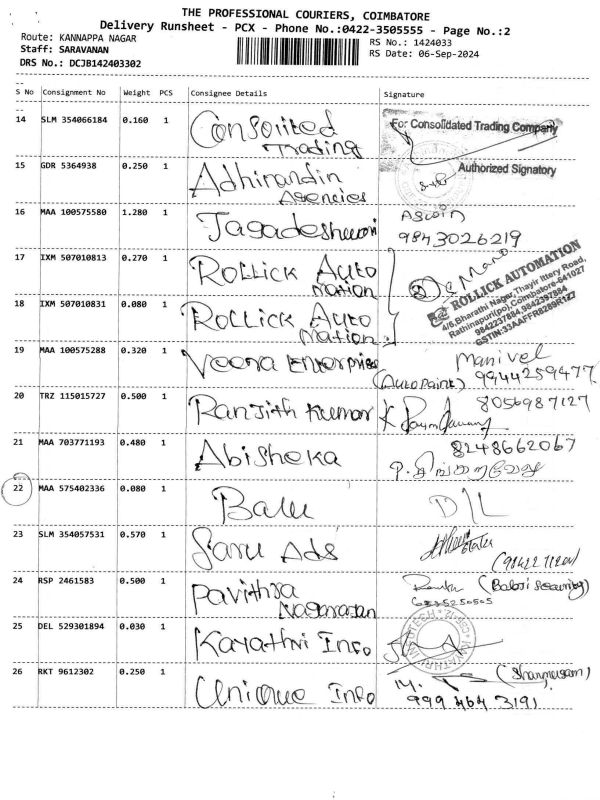 THE PROFESSIONAL COURIERS, COIMBATORE
Delivery Runsheet - PCX - Phone No.:0422-3505555 - Page No.:2
Route: KANNAPPA NAGAR
Staff: SARAVANAN
DRS No.: DCJB142403302
RS No.: 1424033
RS Date: 06-Sep-2024
S No Consignment No Weight PCS Consignee Details Signature
14 SLM 354066184 0.160 1 Consolited Trading For Consolidated Trading Company
Authorized Signatory
15 GDR 5364938 0.250 1 Adhinandin Agencies
16 MAA 100575580 1.280 1 Jagadeshwori Aswin
9843026219
17 IXM 507010813 0.270 1 Rollick Automation
18 IXM 507010831 0.080 1 Rollick Automation
ROLLICK AUTOMATION
4/6,Bharathi Nagar,Thayir Ittery Road,
Rathinapuri(po),Coimbatore-641027
9842237884,9842397884
19 MAA 100575288 0.320 1 Veera Enterprise Manivel
(Auto Paint) 9944259477
20 TRZ 115015727 0.500 1 Ranjith Kumar 8056987127
21 MAA 703771193 0.480 1 Abisheka 8248662067
22 MAA 575402336 0.080 1 Balu D/L
23 SLM 354057531 0.570 1 Saru Ads
24 RSP 2461583 0.500 1 Pavithra Nagarajan
25 DEL 529301894 0.030 1 Kayathri Info
26 RKT 9612302 0.250 1 Unique Info (Shanmugam)
999 464 3191